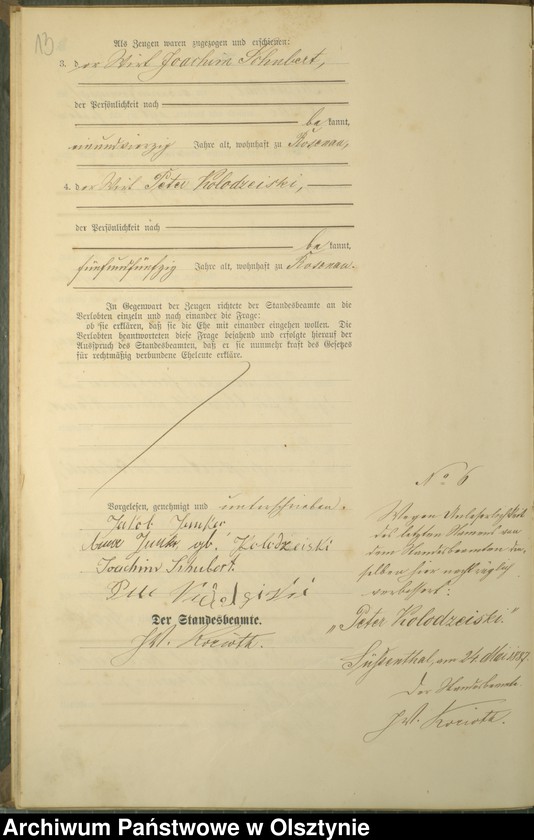 13
Als Zeugen waren zugezogen und erschienen:
3. der Wirt Joachim Schubert,
der Persönlichkeit nach
be kannt,
einundvierzig Jahre alt, wohnhaft zu Rosenau,
4. der Wirt Peter Kolodzeiski,
der Persönlichkeit nach
be kannt,
fünfundfünfzig Jahre alt, wohnhaft zu Rosenau.
In Gegenwart der Zeugen richtete der Standesbeamte an die
Verlobten einzeln und nach einander die Frage:
ob sie erklären, daß sie die Ehe mit einander eingehen wollen. Die
Verlobten beantworteten diese Frage bejahend und erfolgte hierauf der
Ausspruch des Standesbeamten, daß er sie nunmehr kraft des Gesetzes
für rechtmäßig verbundene Eheleute erkläre.
Vorgelesen, genehmigt und unterschrieben.
Jakob Junker
Junker gb. Kolodzeiski
Joachim Schubert
Der Standesbeamte.
No 6
Wegen Unleserlichkeit
des letzten Namens von
dem Standesbeamten derselben hier nachträglich
verbessert:
„Peter Kolodzeiski."
Süssenthal, am 24 Mai 1887.
Der Standesbeamte.
Archiwum Państwowe w Olsztynie